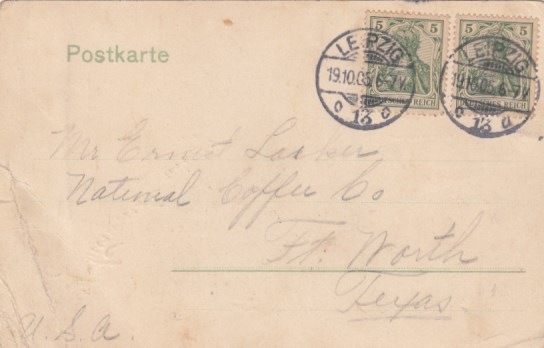 Postkarte
5 5 5 5
LEIPZIG LEIPZIG
19.10.05. 6-7 V. 19.10.05. 6-7 V.
DEUTSCHES REICH DEUTSCHES REICH
13 13
Mr Ernest
National Coffee Co
Ft. Worth
Texas.
U.S.A.